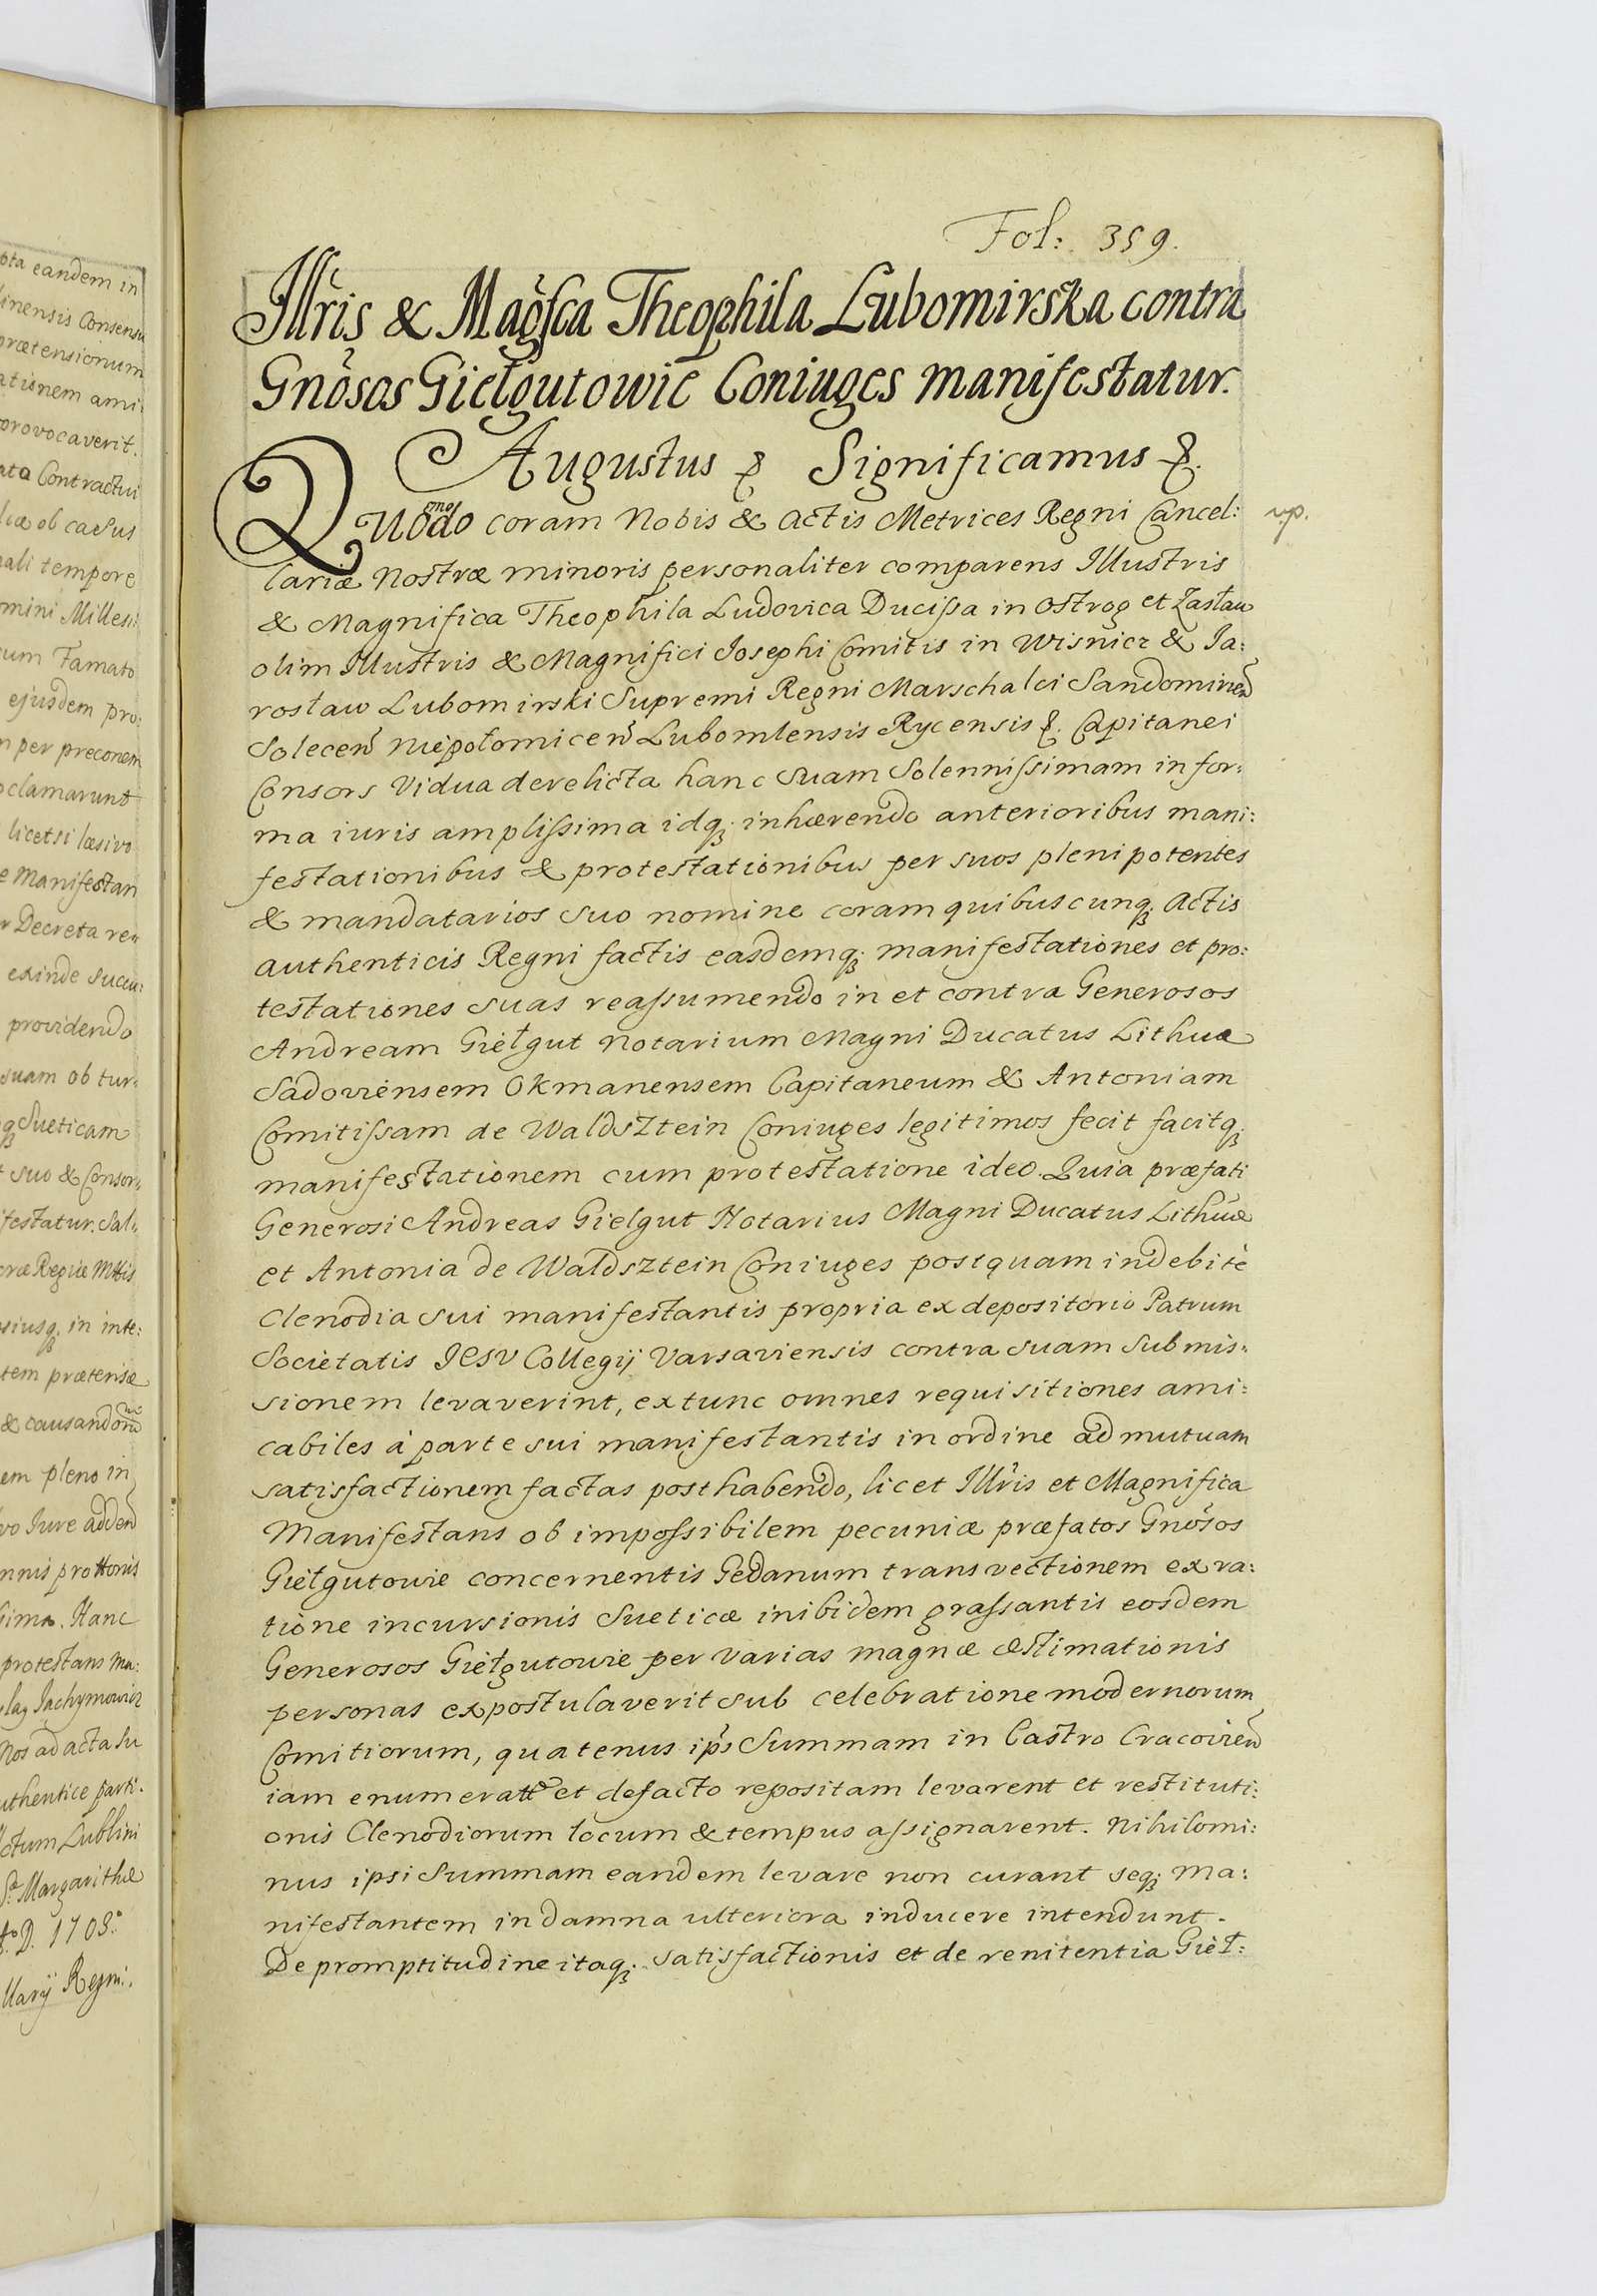 pta eandem in
inensis Consensu
prætensionum
ationem ami:
provocaverit.
ata Contractui
liæ ob casus
nali tempore
omini Milles:
cum Famato
ejusdem pro:
m per preconem
oclamarunt
licetsi læsivo
e Manifestan
r Decreta ren
exinde succu:
providendo
suam ob tur:
q; Sueticam
t suo & Consor:
ifestatur. Sal:
cræ Regiæ Mttis
siusq; in inte:
tem prætensæ
& causandorum
em pleno in
vo Iure adden
nnis prottonis
sima. Hanc
protestans Ma:
lag Jachymowicz
Nos ad acta su
uthentice parti.
ctum Lublini
Stæ Margarithæ
D. 1703.
llarij Regni.
Fol: 359.
Illris & Magfca Theophila Lubomirska contra
Gnosos Giełgutowie Coniuges manifestatur.
Augustus &. Significamus &.
Quomodo coram Nobis & Actis Metrices Regni Cancel: up.
lariæ Nostræ minoris personaliter comparens Illustris
& Magnifica Theophila Ludovica Ducissa in Ostrog et Zasław
olim Illustris & Magnifici Iosephi Comitis in Wisnicz & Ja:
rosław Lubomirski Supremi Regni Marschalci Sandomiren
Solecen Niepołomicen Lubomlensis Rycensis &. Capitanei
Consors Vidua derelicta hanc suam Solennissimam in for:
ma iuris amplissima idq; inhærendo anterioribus mani:
festationibus & protestationibus per suos plenipotentes
& mandatarios suo nomine coram quibuscunq; Actis
authenticis Regni factis easdemq; manifestationes et pro:
testationes suas reassumendo in et contra Generosos
Andream Giełgut Notarium Magni Ducatus Lithuæ
Sadoviensem Okmanensem Capitaneum & Antoniam
Comitissam de Waldsztein Coniuges legitimos fecit facitq;
manifestationem cum protestatione ideo. Quia præfati
Generosi Andreas Gielgut Notarius Magni Ducatus Lithuæ
et Antonia de Waldsztein Coniuges postquam indebitè
Clenodia sui manifestantis propria ex depositorio Patrum
Societatis JESV Collegij Varsaviensis contra suam submis:
sionem levaverint, extunc omnes requisitiones ami:
cabiles à parte sui manifestantis in ordine ad mutuam
satisfactionem factas posthabendo, licet Illris et Magnifica
Manifestans ob impossibilem pecuniæ præfatos Gnosos
Giełgutowie concernentis Gedanum transvectionem ex ra:
tione incursionis Sueticæ inibidem grassantis eosdem
Generosos Giełgutowie per varias magnæ æstimationis
personas expostulaverit sub celebratione modernorum
Comitiorum, quatenus ips Summam in Castro Cracovien
iam enumeratt et defacto repositam levarent et restituti:
onis Clenodiorum locum & tempus assignarent. Nihilomi:
nus ipsi Summam eandem levare non curant seq; Ma:
nifestantem in damna ulteriora inducere intendunt.
De promptitudine itaq; satisfactionis et de renitentia Gieł: